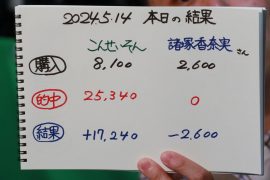 2024.5.14 本日の結果
こんせいそん 諸塚香奈実さん
購入 8,100 2,600
的中 25,340 0
結果 +17,240 -2,600